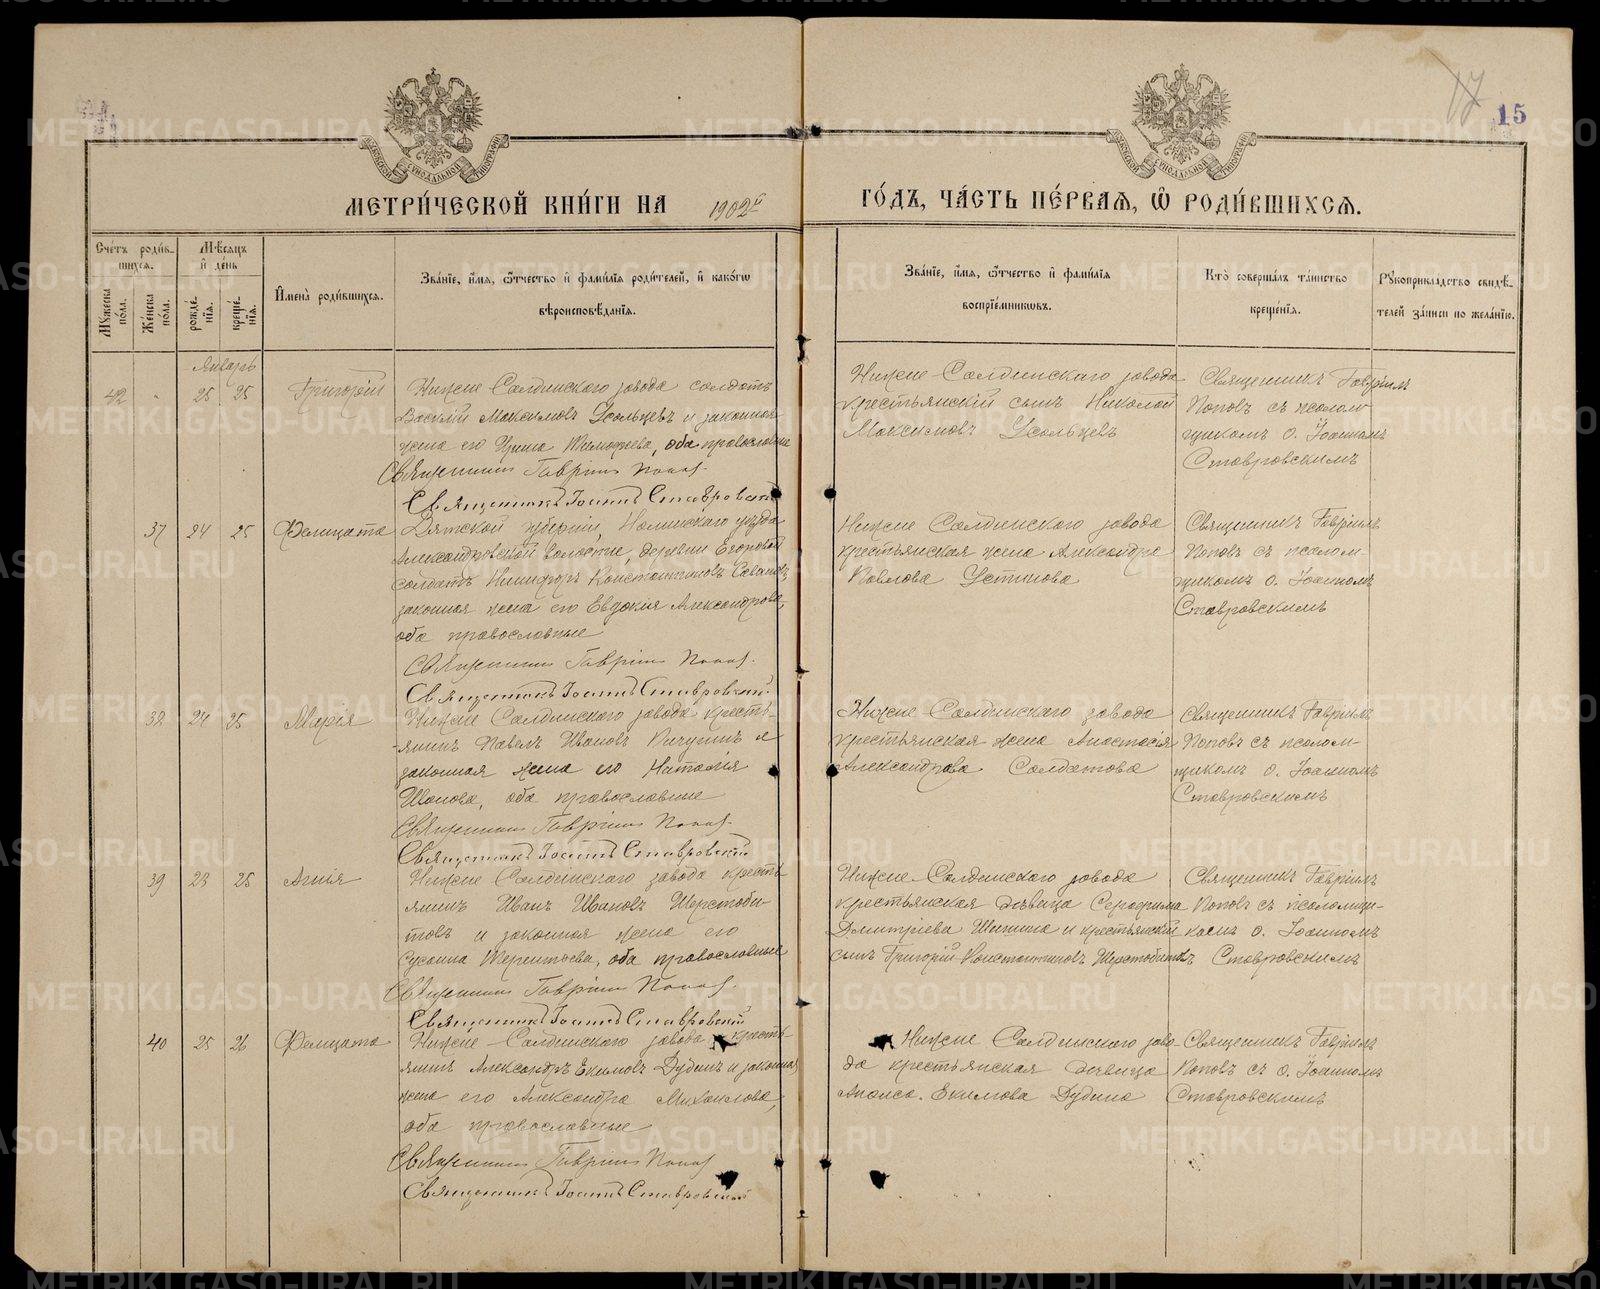 17
15
МОСКОВСКОЙ СУНОДАЛЬНОЙ ТИПОГРАФІИ
МОСКОВСКОЙ СУНОДАЛЬНОЙ ТИПОГРАФІИ
МЕТРИ́ЧЕСКОЙ КНИ́ГИ НА 1902й ГО́ДЪ, ЧА́СТЬ ПЕ́РВАѦ, Ѡ РОДИ́ВШИХСѦ.
Сче́тъ роди́в-
шихсѧ.
Мꙋжеска по́ла.
Же́нска по́ла.
Мѣсѧцъ
и҆ де́нь
рожде́-
нїѧ.
креще́-
нїѧ.
И҆мена̀ роди́вшихсѧ.
Зва́нїе, и҆́мѧ, ѻ҆́тчество и҆ фами́лїѧ роди́телей, и҆ како́гѡ
вѣроисповѣ́данїѧ.
Зва́нїе, и҆́мѧ, ѻ҆́тчество и҆ фами́лїѧ
воспрїе́мникѡвъ.
Кто̀ соверша́лъ та́инство
креще́нїѧ.
Рꙋкоприкла́дство свидѣ́-
телей за́писи по жела́нїю.
Январь
42 „ 25 25 Григорій
Нижне-Салдинскаго завода солдатъ
Василій Максимовъ Усольцевъ и законная
жена его Ирина Тимофеева, оба православные
Священникъ Гавріилъ Поповъ.
Священникъ Іоаннъ Ставровскій
Нижне-Салдинскаго завода
крестьянскій сынъ Николай
Максимовъ Усольцевъ
Священникъ Гавріилъ
Поповъ съ псалом-
щикомъ о. Іоанномъ
Ставровскимъ
37 24 25 Фелицата
Вятской губерніи, Нолинскаго уѣзда
Александровской волости, деревни Егоровой
солдатъ Никифоръ Константиновъ
законная жена его Евдокія Александрова,
оба православные
Священникъ Гавріилъ Поповъ.
Священникъ Іоаннъ Ставровскій.
Нижне Салдинскаго завода
крестьянская жена Александра
Павлова Устинова
Священникъ Гавріилъ
Поповъ съ псалом-
щикомъ о. Іоанномъ
Ставровскимъ
38 24 25 Марія
Нижне Салдинскаго завода кресть-
янинъ Павелъ Ивановъ Пичугинъ и
законная жена его Наталія
Иванова, оба православные
Священникъ Гавріилъ Поповъ.
Священникъ Іоаннъ Ставровскій
Нижне Салдинскаго завода
крестьянская жена Анастасія
Александрова Солдатова
Священникъ Гавріилъ
Поповъ съ псалом-
щикомъ о. Іоанномъ
Ставровскимъ
39 23 25 Агнія
Нижне-Салдинскаго завода кресть
янинъ Иванъ Ивановъ Шерстоби-
товъ и законная жена его
Сусанна Терентьева, оба православные
Священникъ Гавріилъ Поповъ.
Священникъ Іоаннъ Ставровскій
Нижне-Салдинскаго завода
крестьянская дѣвица Серафима
Дмитріева Шишина и крестьянскій
сынъ Григорій Константиновъ Шерстобитовъ
Священникъ Гавріилъ
Поповъ съ псаломщи-
комъ о. Іоанномъ
Ставровскимъ
40 25 26 Фелицата
Нижне-Салдинскаго завода кресть-
янинъ Александръ Екимовъ Дудинъ и законная
жена его Александра Михаилова,
оба православные
Священникъ Гавріилъ Поповъ
Священникъ Іоаннъ Ставровскій
Нижне Салдинскаго заво-
да крестьянская дѣвица
Анаиса Екимова Дудина
Священникъ Гавріилъ
Поповъ съ о. Іоанномъ
Ставровскимъ
METRIKI.GASO-URAL.RU